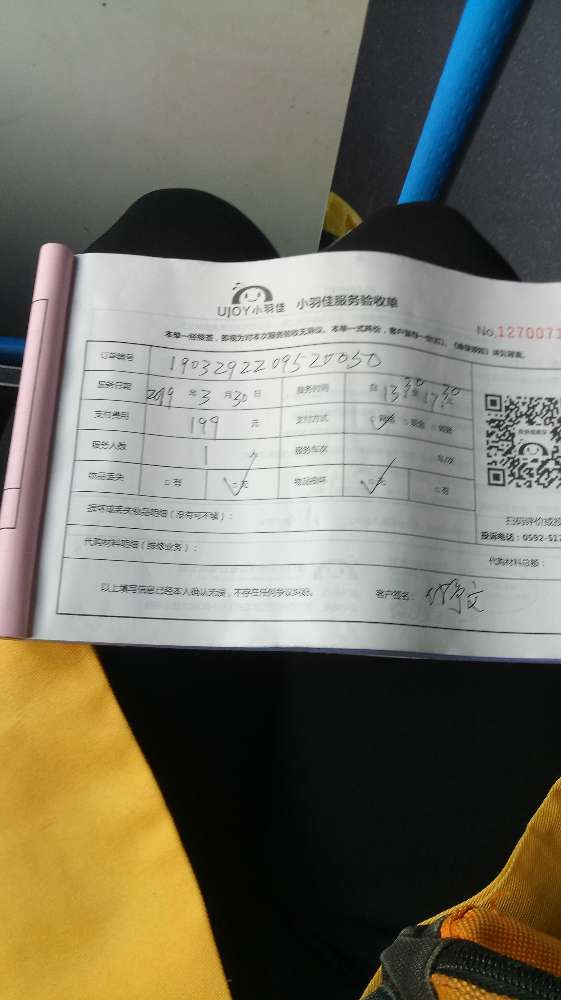 UJOY小羽佳 小羽佳服务验收单
No.1270071
本单一经核签，即视为对本次服务验收无异议。本单一式两份，客户留存一份
订单编号 1903292209520050
服务日期 2019 年 3 月 30 日 服务时间 自 13:30 至 17:30
支付费用 199 元 支付方式 □ 网络 □ 现金
服务人数 1 服务车次 车/次
物品丢失 □ 有 □ 无 物品损坏 □ 无 □ 有
损坏或丢失物品明细（没有可不填）：
代购材料明细（维修业务）： 代购材料总额：
以上填写信息已经本人确认无误，不存在任何争议纠纷。 客户签名：
扫码评价或投
投诉电话：0592-517